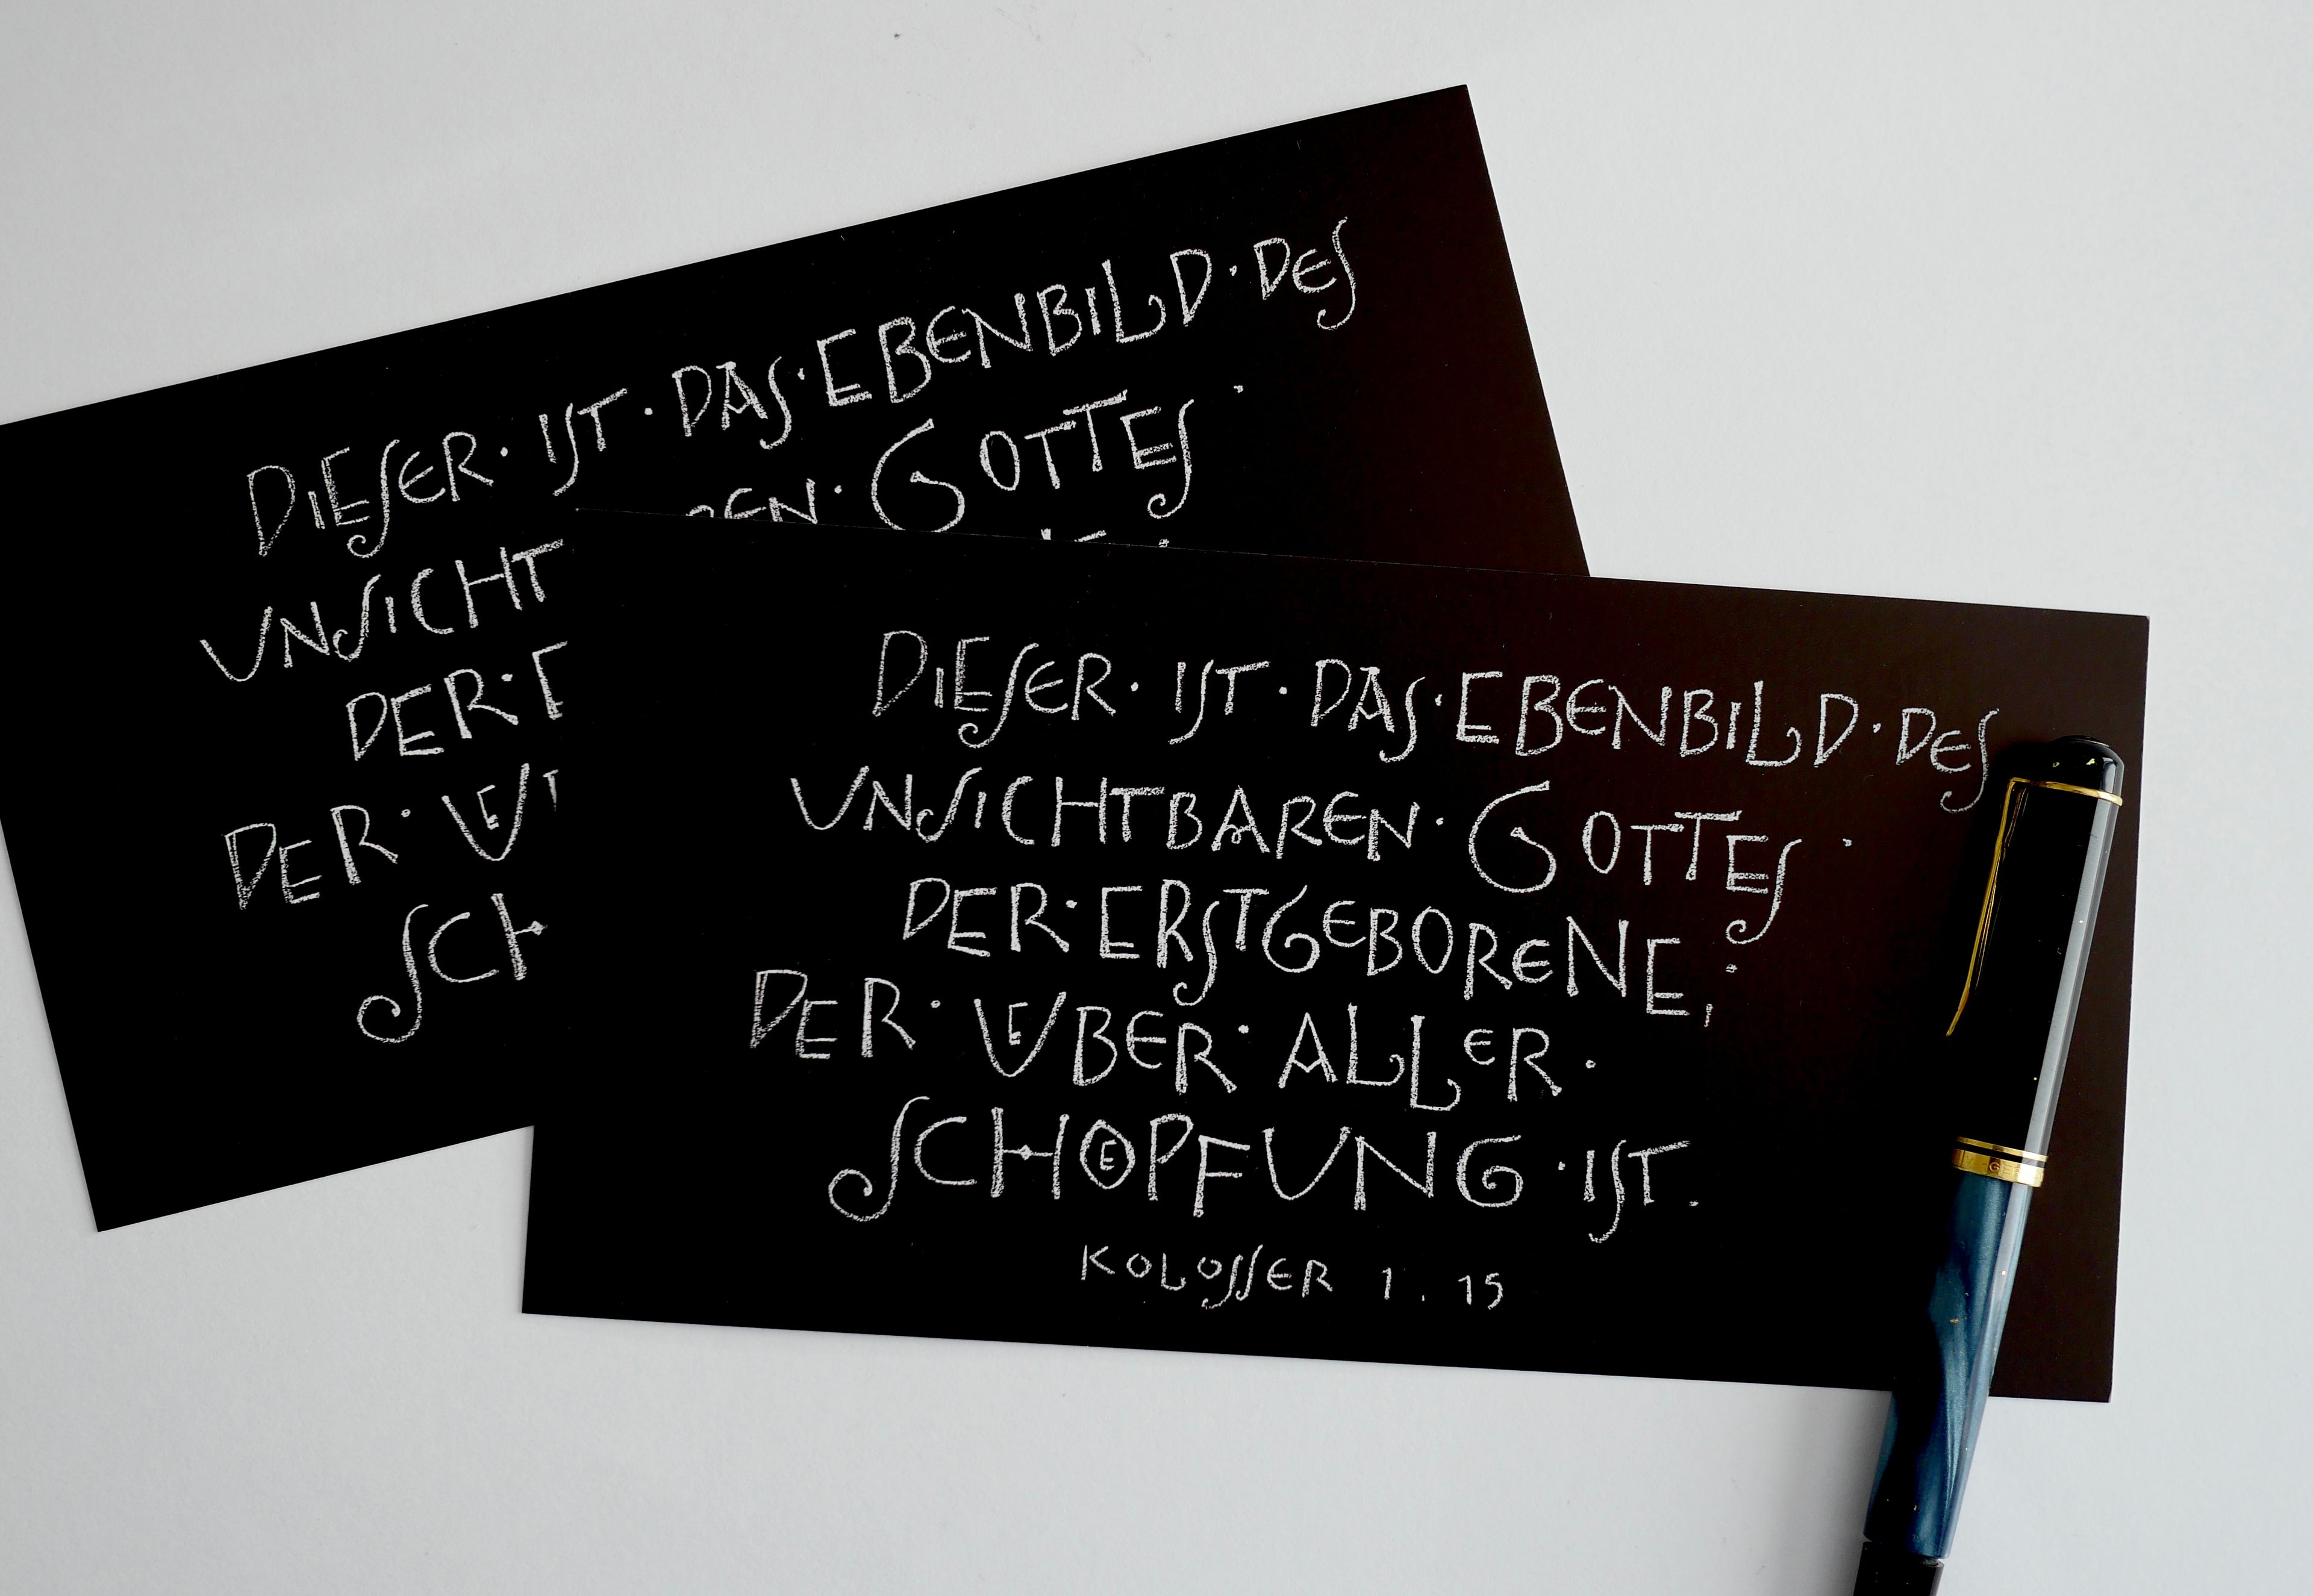 DIESER · IST · DAS · EBENBILD · DES
UNSICHT
EN · GOTTES ·
DER ·
DER ·
SCH
DIESER · IST · DAS · EBENBILD · DES
UNSICHTBAREN · GOTTES ·
DER · ERSTGEBORENE, ·
DER · ÜBER · ALLER ·
SCHÖPFUNG · IST.
KOLOSSER 1. 15